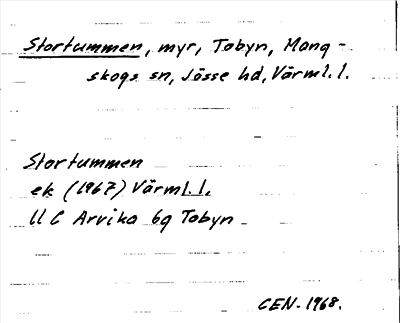 Stortummen, myr, Tobyn, Mang -
skogs sn, Jösse hd, Värml. l.
Stortummen
ek (1967) Värml. l.
11 C Arvika 6g Tobyn
CEN - 1968.